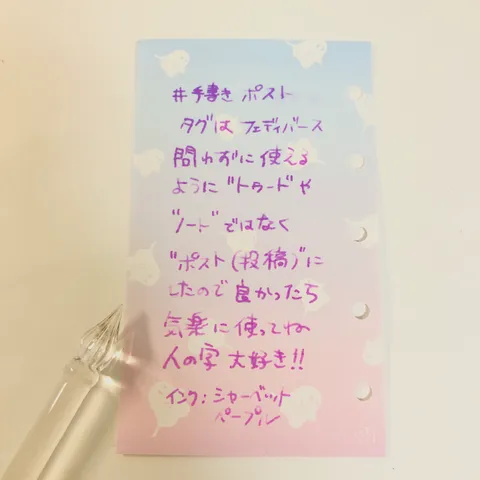 #手書き ポスト
タグは フェディバース
問わずに 使える
ように "トゥート"や
"ノート"ではなく
"ポスト(投稿)"に
したので 良かったら
気楽に 使ってね
人の字 大好き!!
インク:シャーベット
パープル